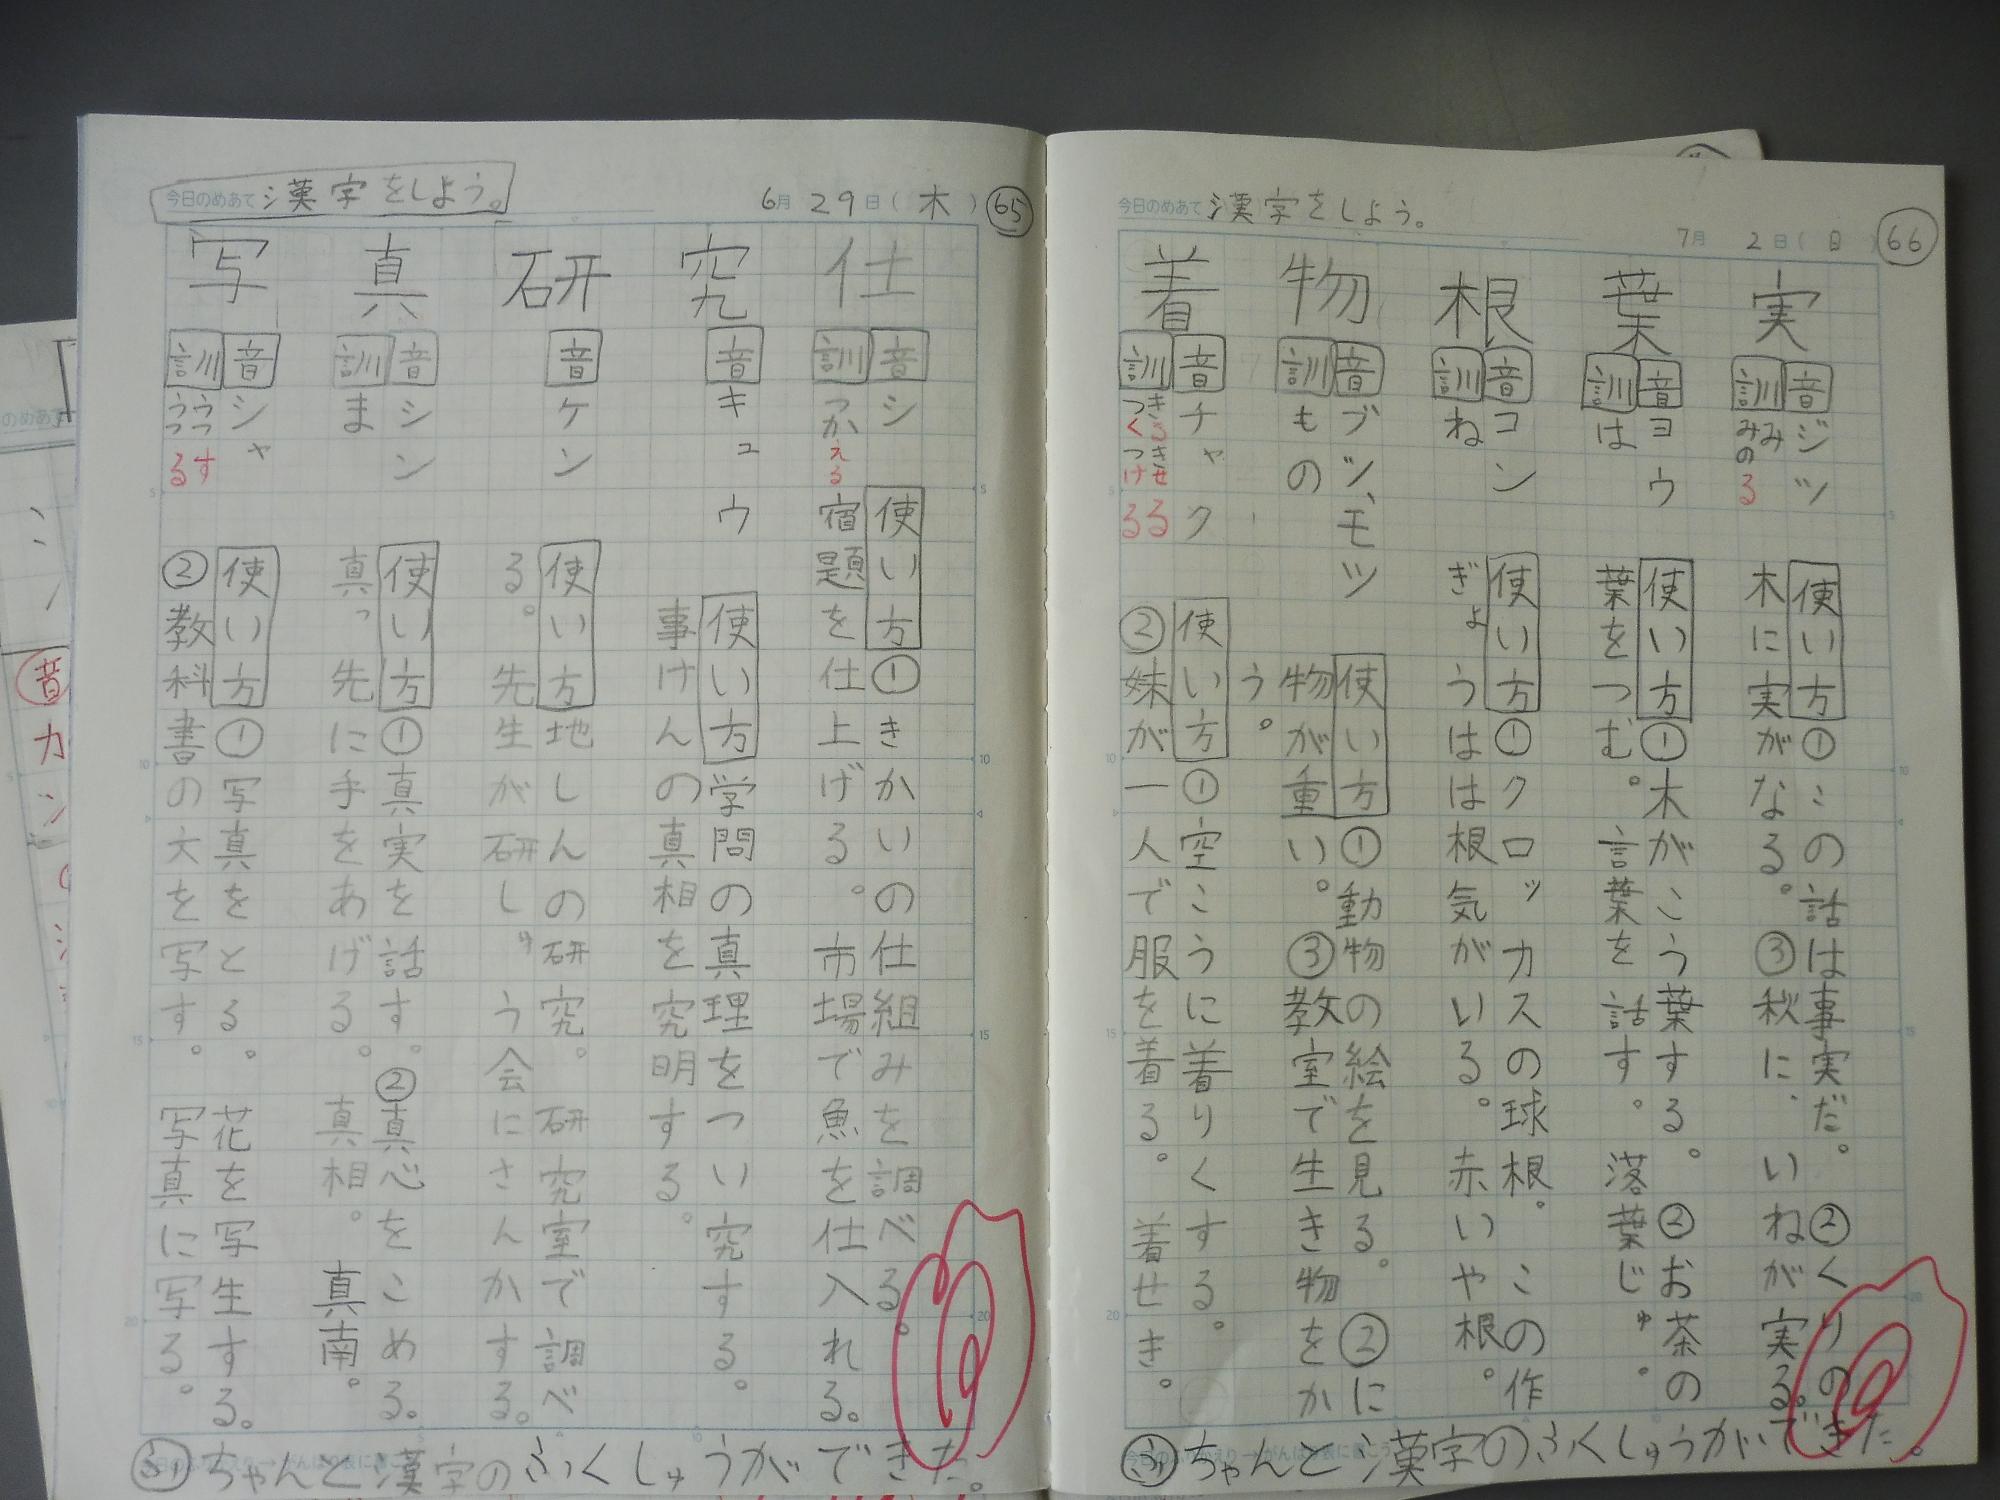 今日のめあて 漢字をしよう。
6月29日(木)
65
仕
音 シ
訓 つかえる
使い方 ①きかいの仕組みを調べる。
宿題を仕上げる。 市場で魚を仕入れる。
究
音 キュウ
使い方 学問の真理をつい究する。
事けんの真相を究明する。
研
音 ケン
使い方 地しんの研究。 研究室で調べ
る。 先生が研しゅう会にさんかする。
真
音 シン
訓 ま
使い方 ①真実を話す。 ②真心をこめる。
真っ先に手をあげる。 真相。 真南。
写
音 シャ
訓 うつす うつる
使い方 ①写真をとる。 花を写生する。
②教科書の大を写す。 写真に写る。
ふり ちゃんと漢字のふくしゅうができた。
今日のめあて 漢字をしよう。
7月2日(日)
66
実
音 ジツ
訓 み みのる
使い方 ①この話は事実だ。 ②くりの
木に実がなる。 ③秋に、いねが実る。
葉
音 ヨウ
訓 は
使い方 ①木がこう葉する。 ②お茶の
葉をつむ。 言葉を話す。 落葉じゅ。
根
音 コン
訓 ね
使い方 ①クロッカスの球根。 この作
ぎょうはは根気がいる。 赤いや根。
物
音 ブツ、モツ
訓 もの
使い方 ①動物の絵を見る。 ②に
物が重い。 ③教室で生き物をか
う。
着
音 チャク
訓 きる きせる つく つける
使い方 ①空こうに着りくする。
②妹が一人で服を着る。 着せき。
ふり ちゃんと漢字のふくしゅうができた。
音
カン